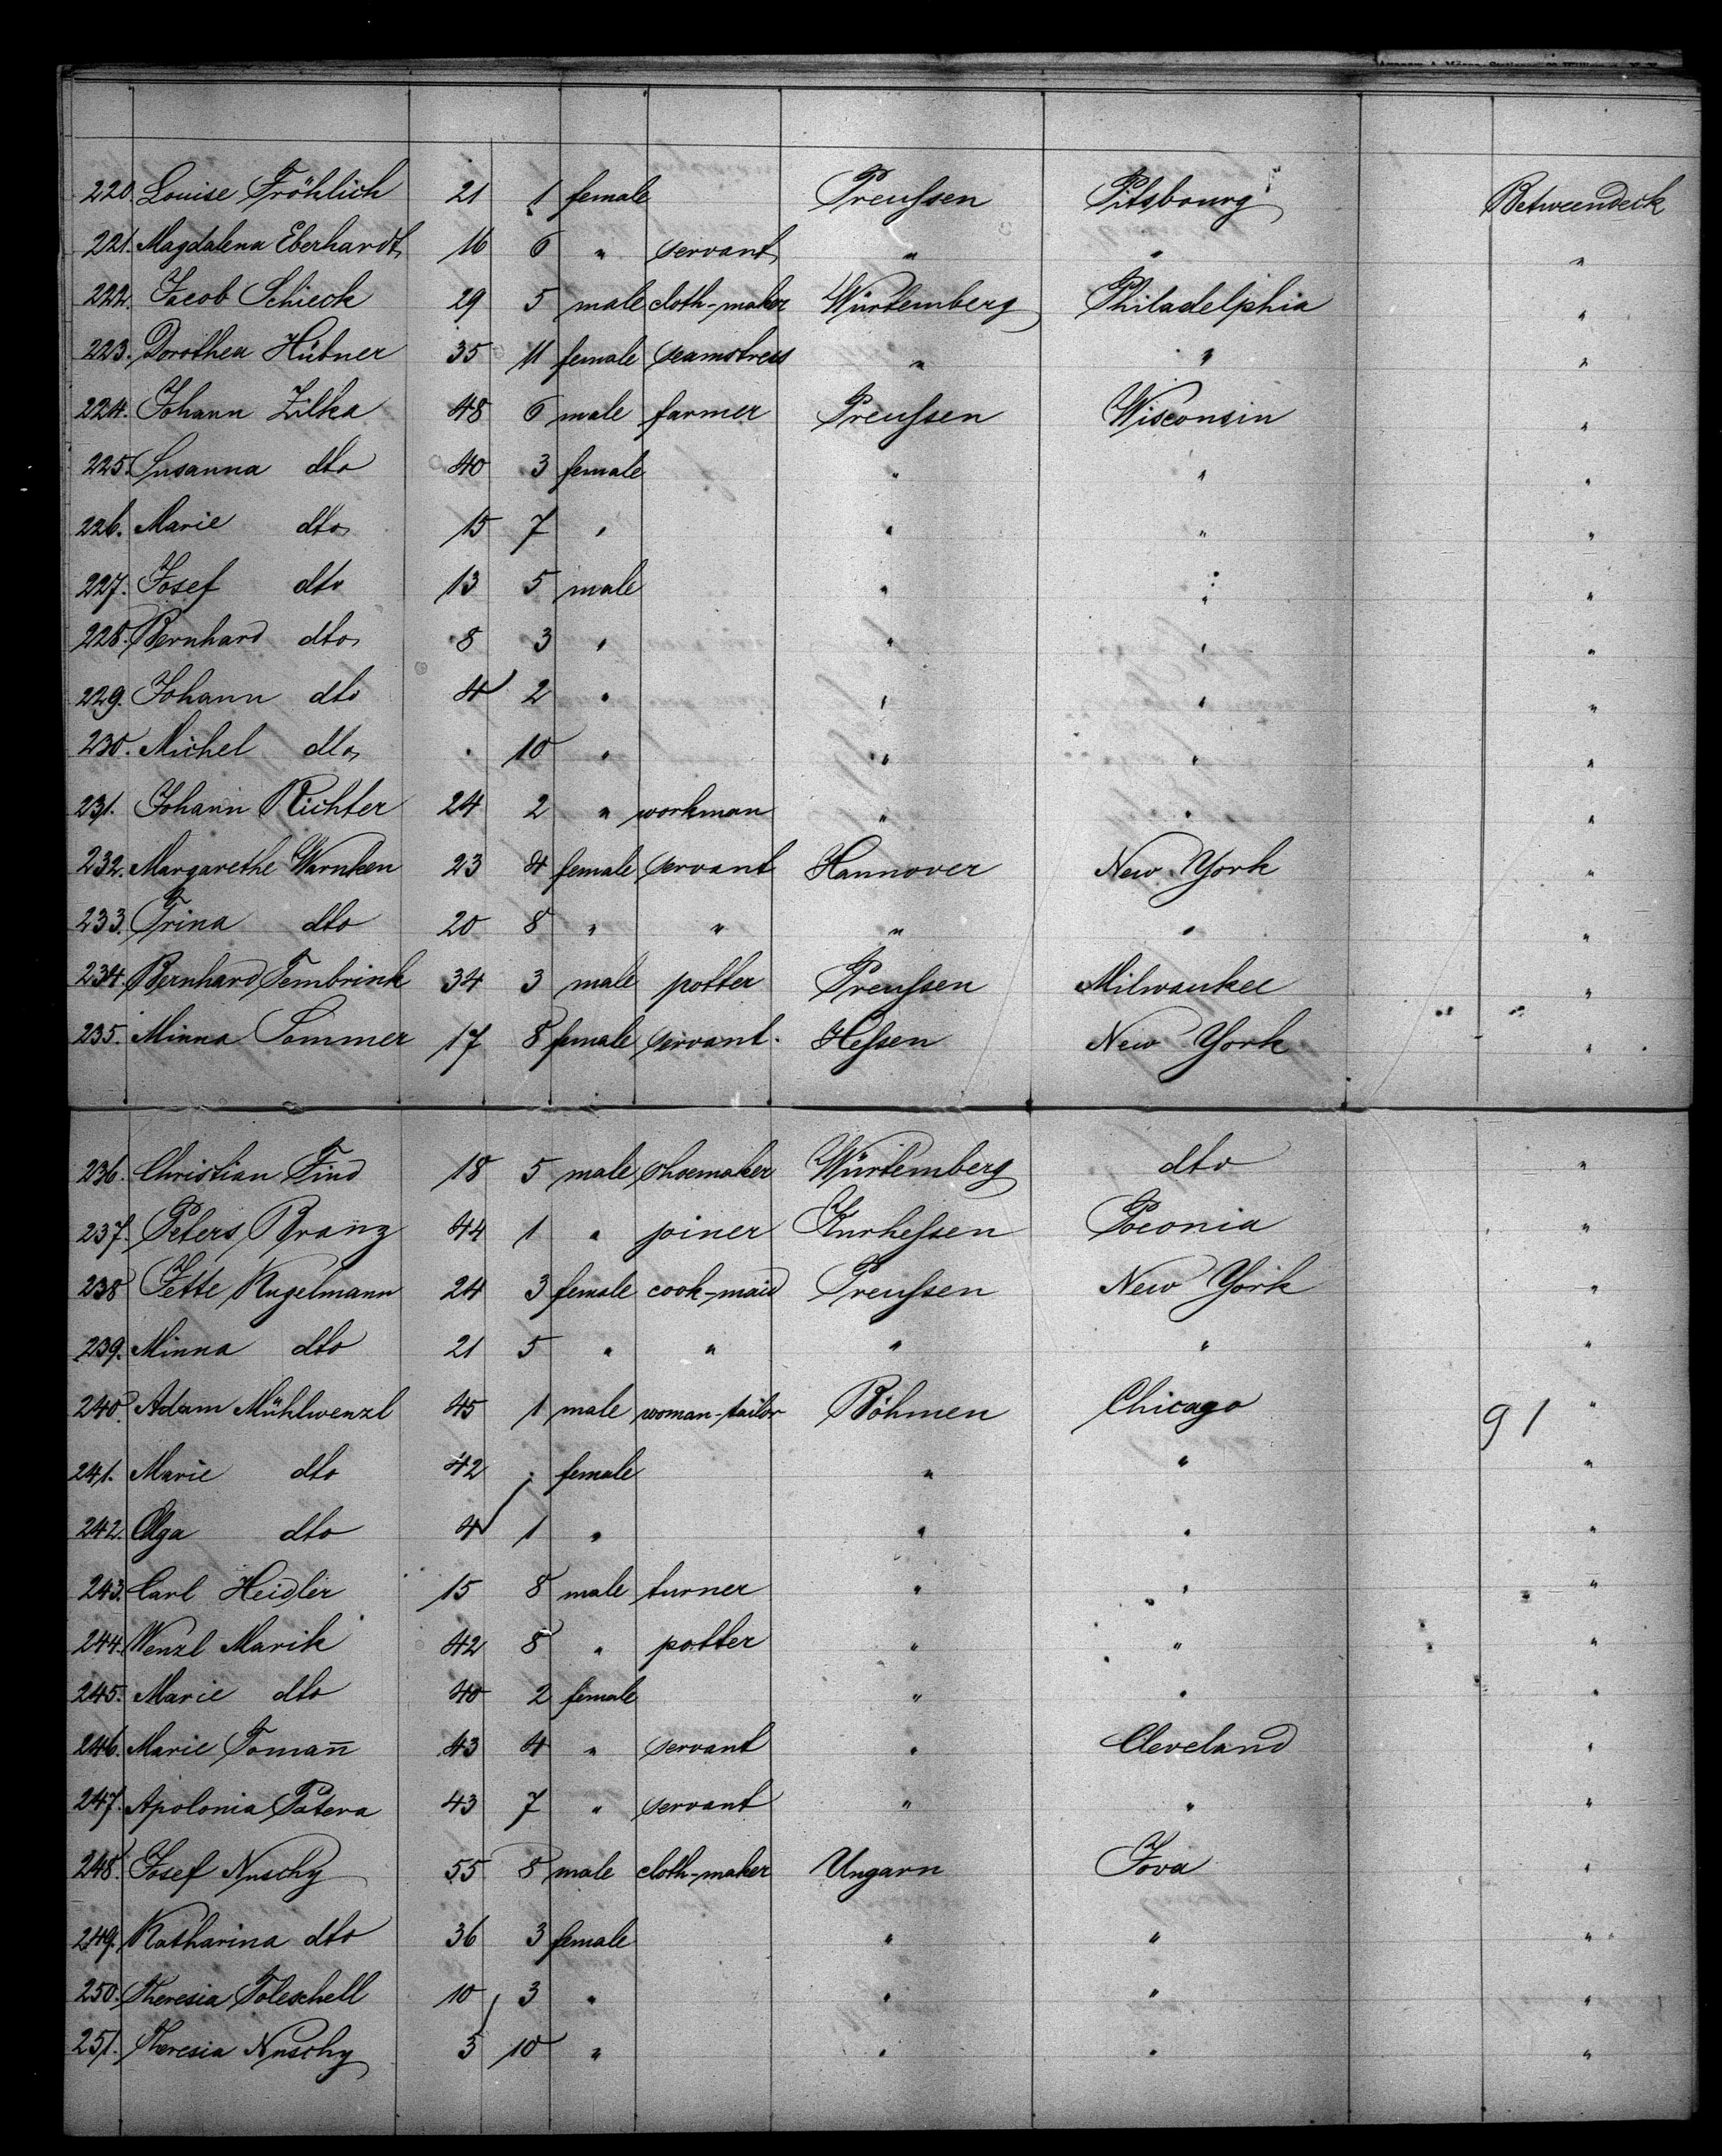 220. Louise Fröhlich 21 1 female Preußen Pitsbourg Betweendeck
221. Magdalena Eberhardt 16 6 " servant " " "
222. Jacob Schieck 29 5 male cloth-maker Würtemberg Philadelphia "
223. Dorothea Hübner 35 11 female seamstress " " "
224. Johann Zilka 48 6 male farmer Preußen Wisconsin "
225. Susanna dto 40 3 female " " "
226. Marie dto 15 7 " " " "
227. Josef dto 13 5 male " " "
228. Bernhard dto 8 3 " " " "
229. Johann dto 4 2 " " " "
230. Michel dto . 10 " " " "
231. Johann Richter 24 2 " workman " " "
232. Margarethe Warnken 23 4 female servant Hannover New York "
233. Trina dto 20 8 " " " " "
234. Bernhard Tembrink 34 3 male potter Preußen Milwaukee "
235. Minna Sommer 17 8 female servant. Heßen New York "
236. Christian Find 18 5 male shoemaker Würtemberg dto "
237. Peters Branz 44 1 " joiner Kurheßen Poeonia "
238 Jette Kugelmann 24 3 female cook-maid Preußen New York "
239. Minna dto 21 5 " " " " "
240. Adam Mühlwenzl 45 1 male woman-tailor Böhmen Chicago 91 "
241. Marie dto 42 . female " " "
242. Olga dto 4 1 " " " "
243. Carl Heidler 15 8 male turner " " "
244. Wenzl Marik 42 8 " potter " " "
245. Marie dto 40 2 female " " "
246. Marie Toman̄ 43 4 " servant " Cleveland "
247. Apolonia Patera 43 7 " servant " " "
248. Josef Nuschy 55 8 male cloth-maker Ungarn Iova "
249. Katharina dto 36 3 female " " "
250. Theresia Toleschell 10 3 " " " "
251. Theresia Nuschy 3 10 " " " "